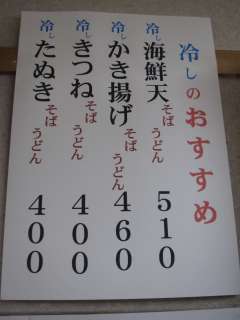 冷しのおすすめ
冷し海鮮天そばうどん 510
冷しかき揚げそばうどん 460
冷しきつねそばうどん 400
冷したぬきそばうどん 400